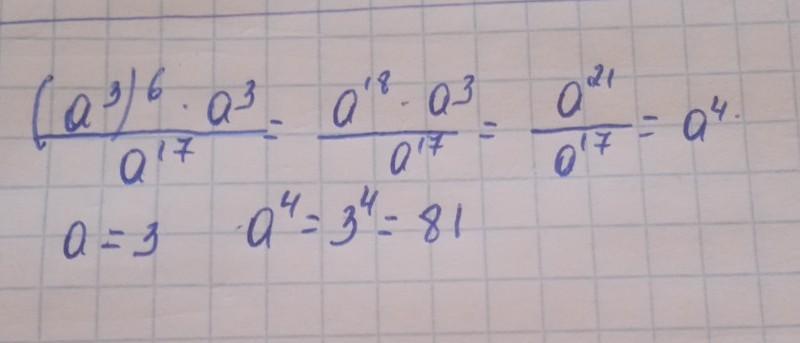 (a³)⁶ · a³ / a¹⁷ = a¹⁸ · a³ / a¹⁷ = a²¹ / a¹⁷ = a⁴.
a = 3 a⁴ = 3⁴ = 81